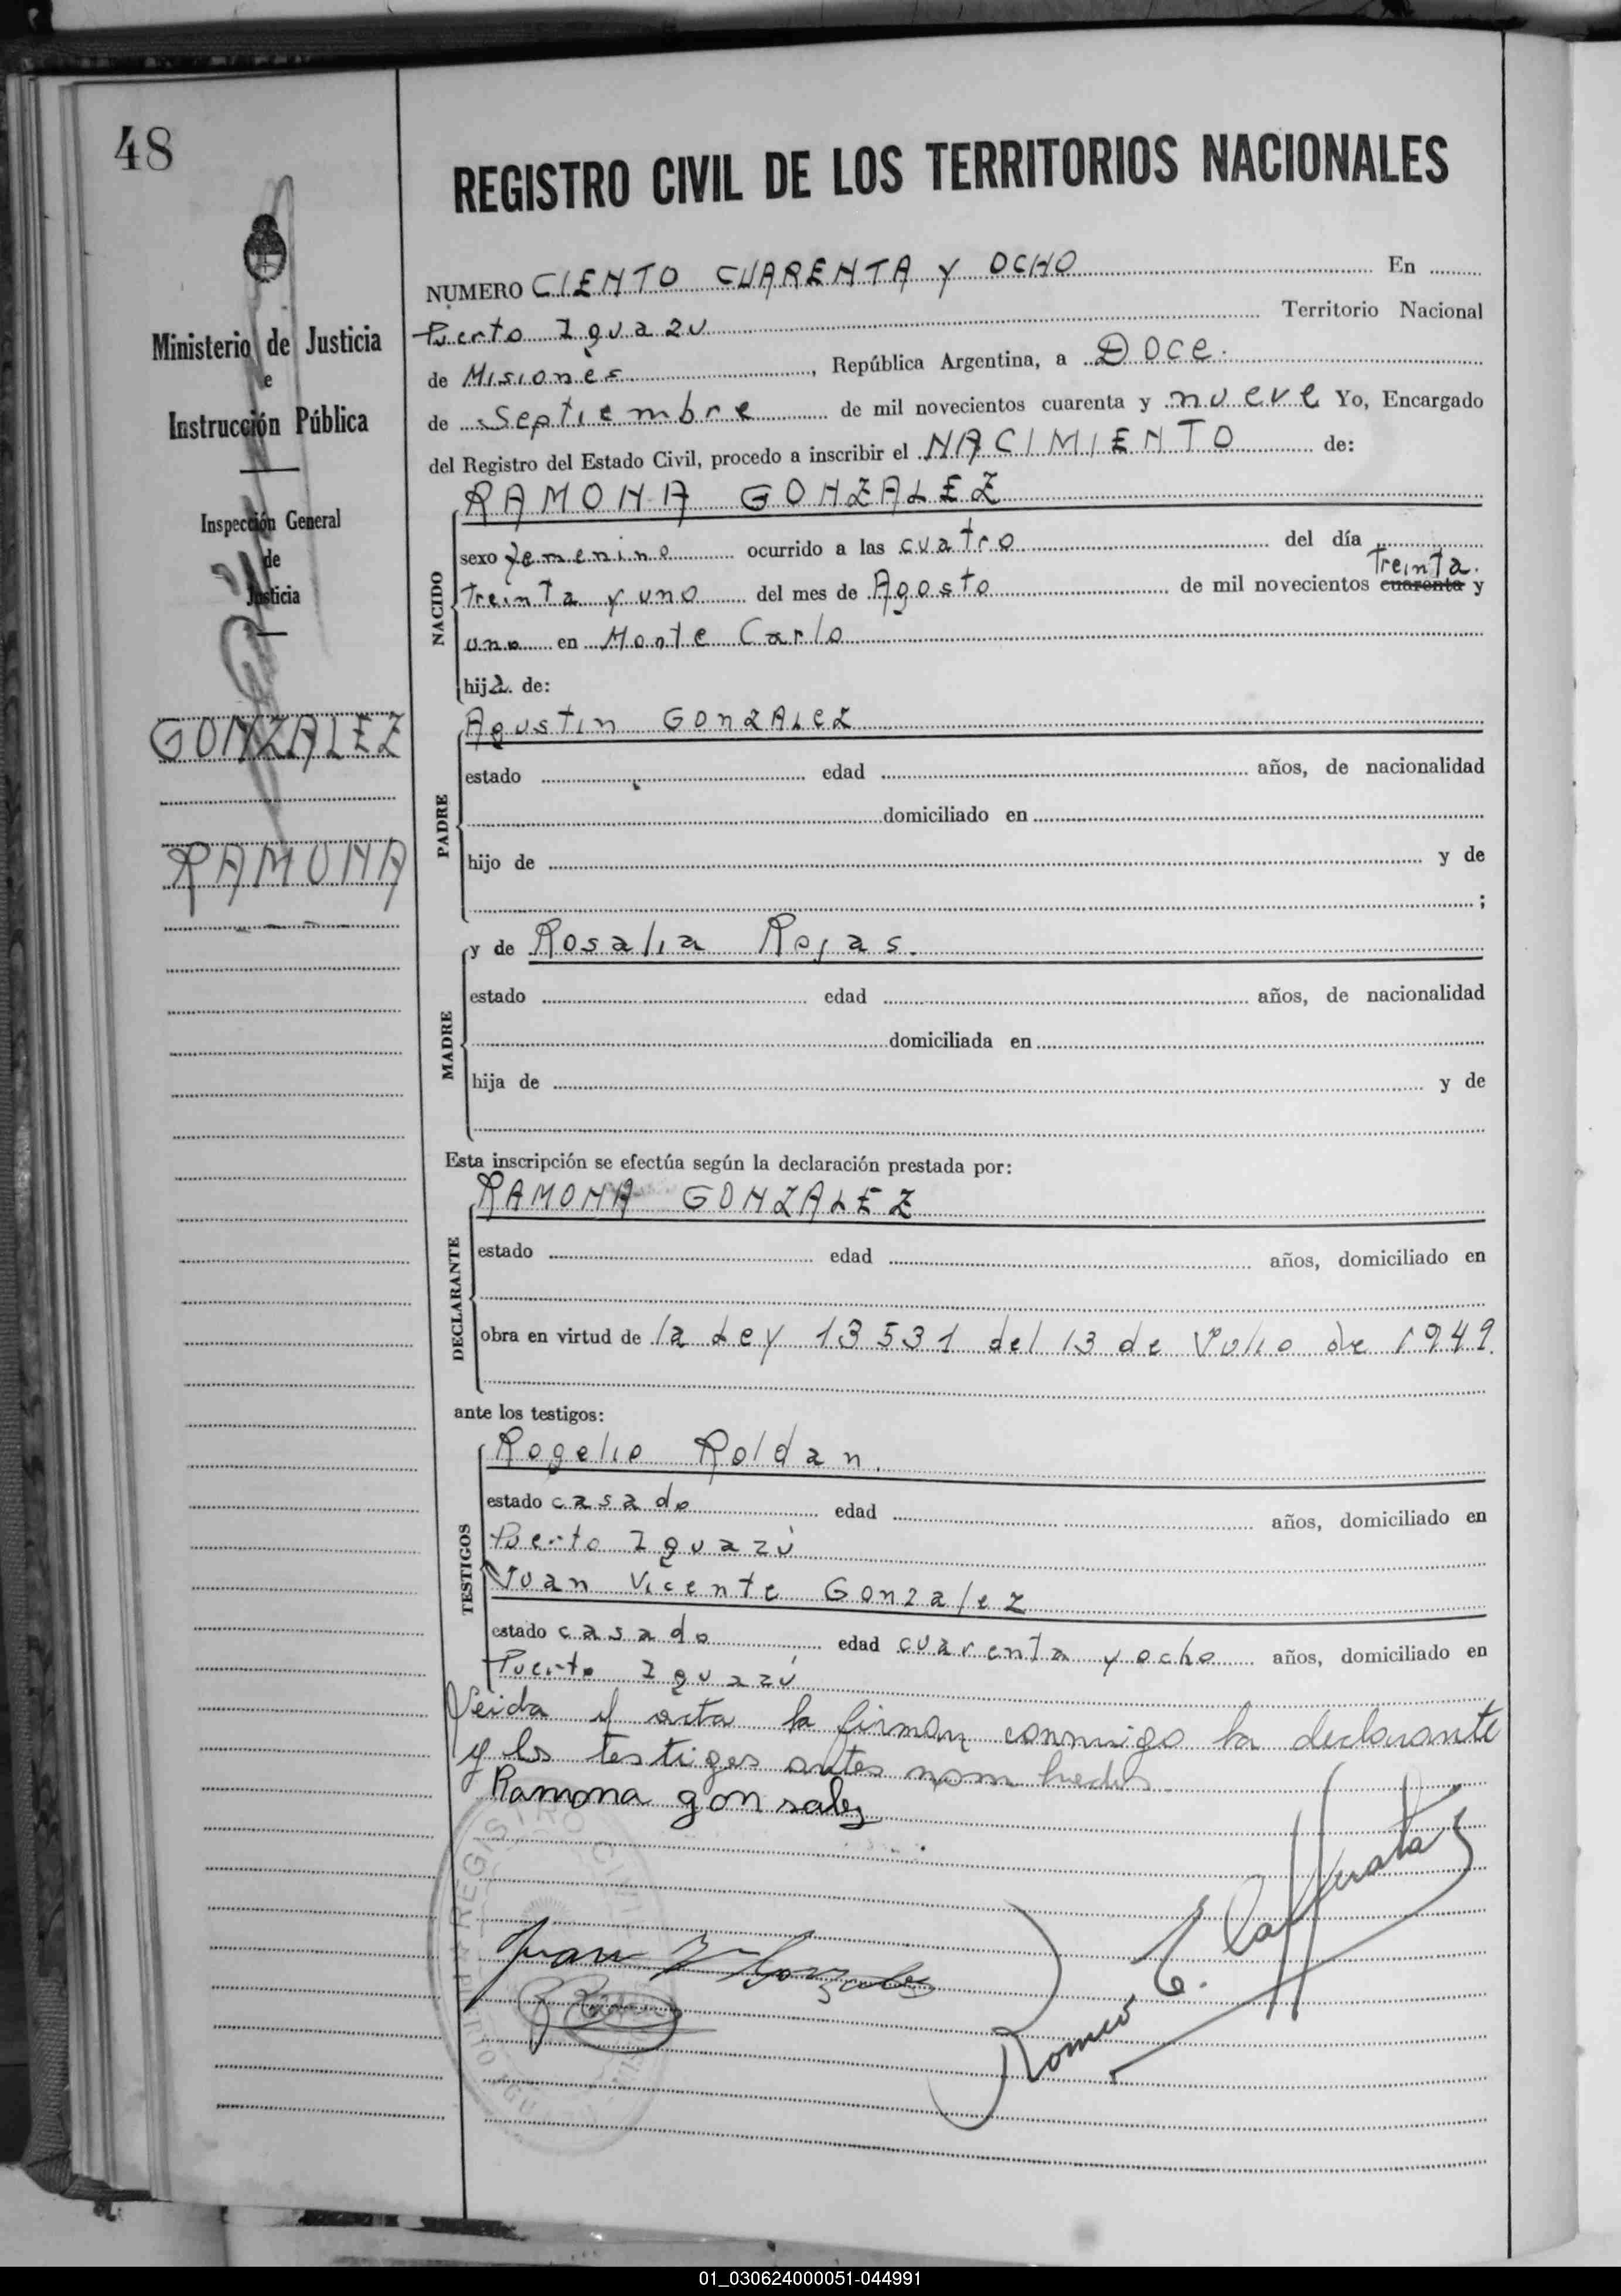 48
REGISTRO CIVIL DE LOS TERRITORIOS NACIONALES
Ministerio de Justicia
e
Instrucción Pública
Inspección General
de
Justicia
GONZALEZ
RAMONA
NUMERO CIENTO CUARENTA Y OCHO En
Puerto Iguazu Territorio Nacional
de Misiones, República Argentina, a Doce.
de Septiembre de mil novecientos cuarenta y nueve Yo, Encargado
del Registro del Estado Civil, procedo a inscribir el NACIMIENTO de:
NACIDO
RAMONA GONZALEZ
sexo femenino ocurrido a las cuatro del día
Treinta.
Treinta y uno del mes de Agosto de mil novecientos cuarenta y
uno en Monte Carlo
hija de:
PADRE
Agustin GonzALeZ
estado edad años, de nacionalidad
domiciliado en
hijo de y de
;
MADRE
y de Rosalia Rojas.
estado edad años, de nacionalidad
domiciliada en
hija de y de
Esta inscripción se efectúa según la declaración prestada por:
DECLARANTE
RAMONA GONZALEZ
estado edad años, domiciliado en
obra en virtud de la Ley 13531 del 13 de Julio de 1949.
ante los testigos:
TESTIGOS
Rogelio Roldan.
estado casado edad años, domiciliado en
Puerto Iguazú
Juan Vicente Gonzalez
estado casado edad cuarenta y ocho años, domiciliado en
Puerto Iguazú
Leida el acta la firman conmigo la declarante
y los testigos antes nombrados.
Ramona gonsales
Juan V Gonzalez
Romeo E.
REGISTRO CIVIL
01_030624000051-044991